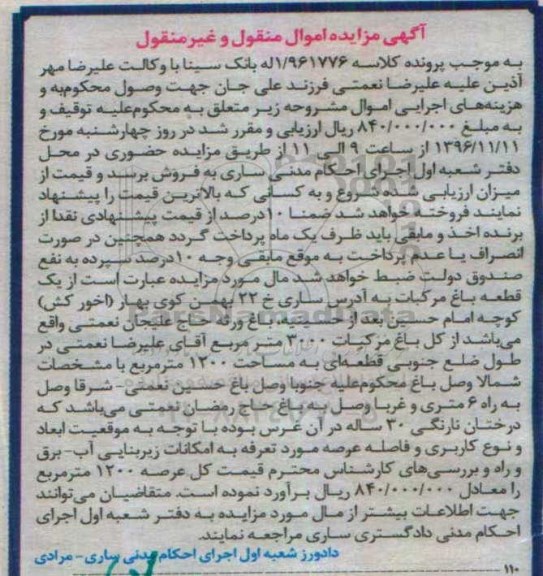 آگهی مزایده اموال منقول و غیرمنقول
به موجب پرونده کلاسه ۱/۹۶۱۷۷۶له بانک سینا با وکالت علیرضا مهر
آذین علیه علیرضا نعمتی فرزند علی جان جهت وصول محکوم‌به و
هزینه‌های اجرایی اموال مشروحه زیر متعلق به محکوم‌علیه توقیف و
به مبلغ ۸۴۰/۰۰۰/۰۰۰ ریال ارزیابی و مقرر شد در روز چهارشنبه مورخ
۱۳۹۶/۱۱/۱۱ از ساعت ۹ الی ۱۱ از طریق مزایده حضوری در محل
دفتر شعبه اول اجرای احکام مدنی ساری به فروش برسد و قیمت از
میزان ارزیابی شده شروع و به کسانی که بالاترین قیمت را پیشنهاد
نمایند فروخته خواهد شد ضمنا ۱۰درصد از قیمت پیشنهادی نقدا از
برنده اخذ و مابقی باید ظرف یک ماه پرداخت گردد همچنین در صورت
انصراف یا عدم پرداخت به موقع مابقی وجه ۱۰درصد سپرده به نفع
صندوق دولت ضبط خواهد شد مال مورد مزایده عبارت است از یک
قطعه باغ مرکبات به آدرس ساری خ ۲۲ بهمن کوی بهار (اخور کش)
کوچه امام حسین بعد از حسینیه، باغ ورثه حاج علیجان نعمتی واقع
می‌باشد از کل باغ مرکبات ۳۰۰۰ متر مربع آقای علیرضا نعمتی در
طول ضلع جنوبی قطعه‌ای به مساحت ۱۲۰۰ مترمربع با مشخصات
شمالا وصل باغ محکوم‌علیه جنوبا وصل باغ حسین نعمتی- شرقا وصل
به راه ۶ متری و غربا وصل به باغ حاج رمضان نعمتی می‌باشد که
درختان نارنگی ۳۰ ساله در آن غرس بوده با توجه به موقعیت ابعاد
و نوع کاربری و فاصله عرصه مورد تعرفه به امکانات زیربنایی آب- برق
و راه و بررسی‌های کارشناس محترم قیمت کل عرصه ۱۲۰۰ مترمربع
را معادل ۸۴۰/۰۰۰/۰۰۰ ریال برآورد نموده است. متقاضیان می‌توانند
جهت اطلاعات بیشتر از مال مورد مزایده به دفتر شعبه اول اجرای
احکام مدنی دادگستری ساری مراجعه نمایند.
دادورز شعبه اول اجرای احکام مدنی ساری- مرادی
۱۱۰
ParsNamadData